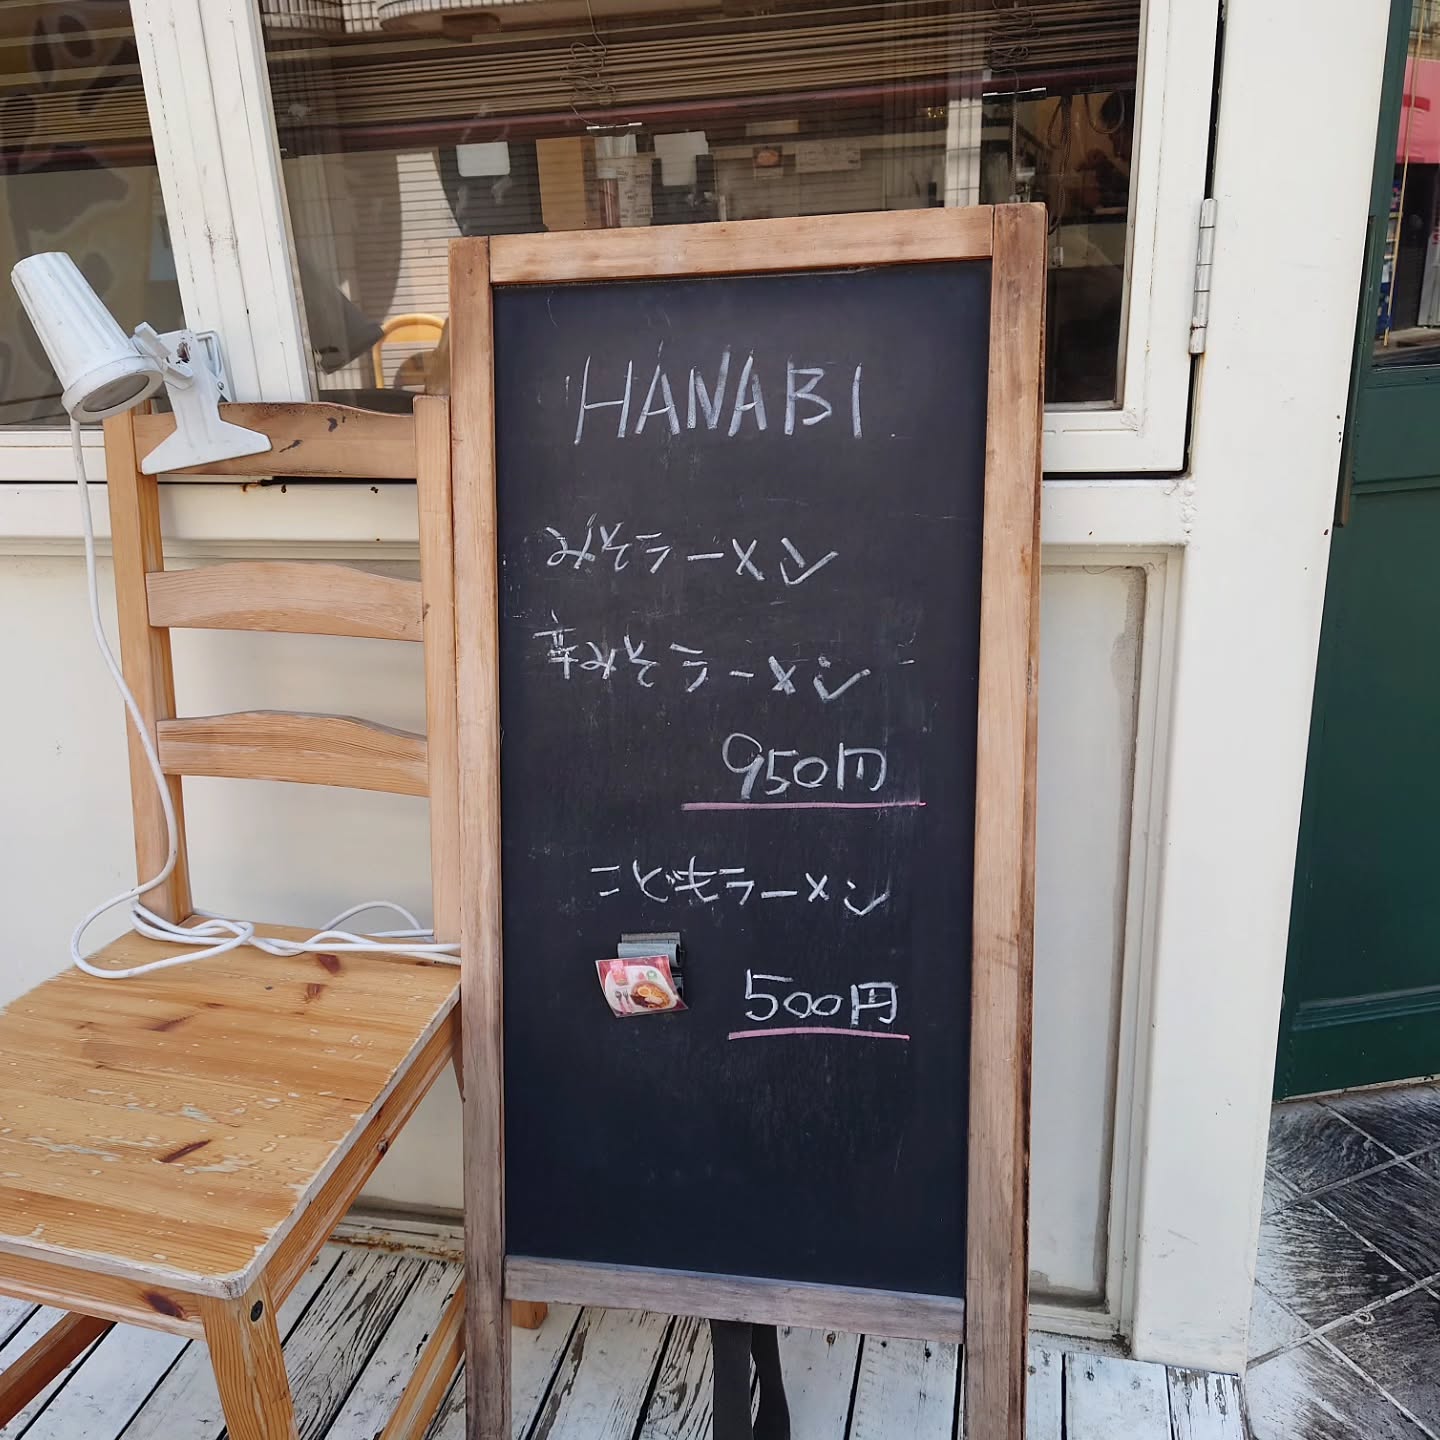 HANABI
みそラーメン
辛みそラーメン
950円
こどもラーメン
500円